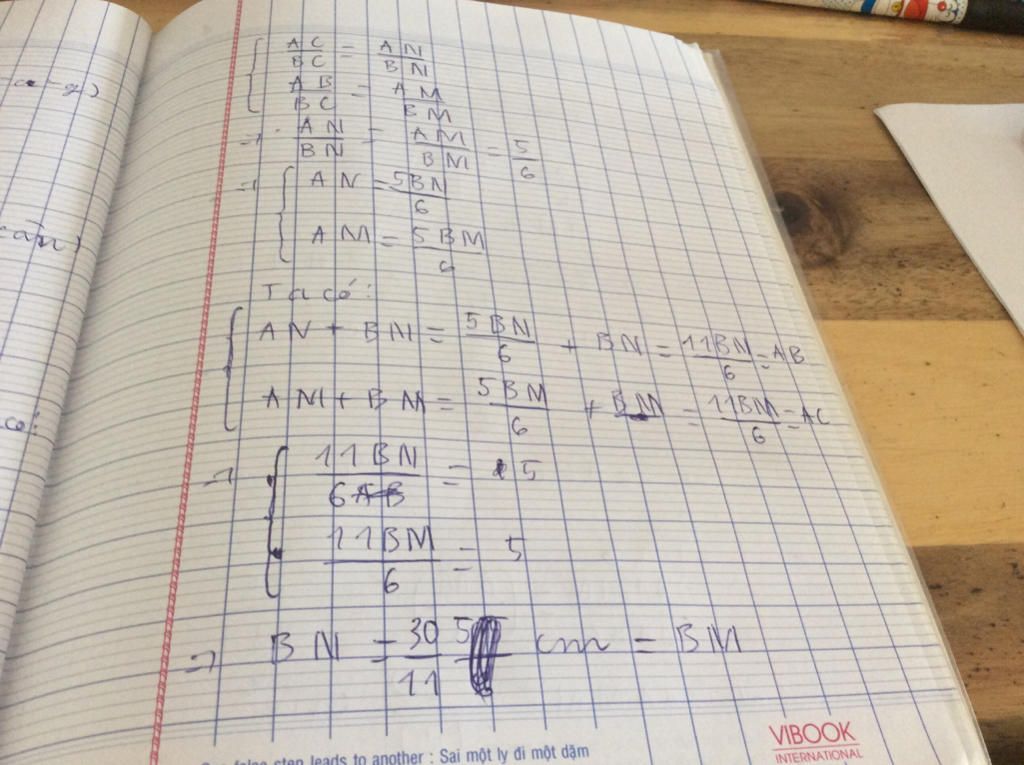 { AC/BC = AN/BN
AB/BC = AM/BM
=> AN/BN = AM/BM = 5/6
=> { AN = 5BN/6
AM = 5BM/6
Ta có:
{ AN + BN = 5BN/6 + BN = 11BN/6 = AB
AM + BM = 5BM/6 + BM = 11BM/6 = AC
=> { 11BN/6 = 5
11BM/6 = 5
=> BN = 30/11 cm = BM
step leads to another : Sai một ly đi một dặm
VIBOOK
INTERNATIONAL